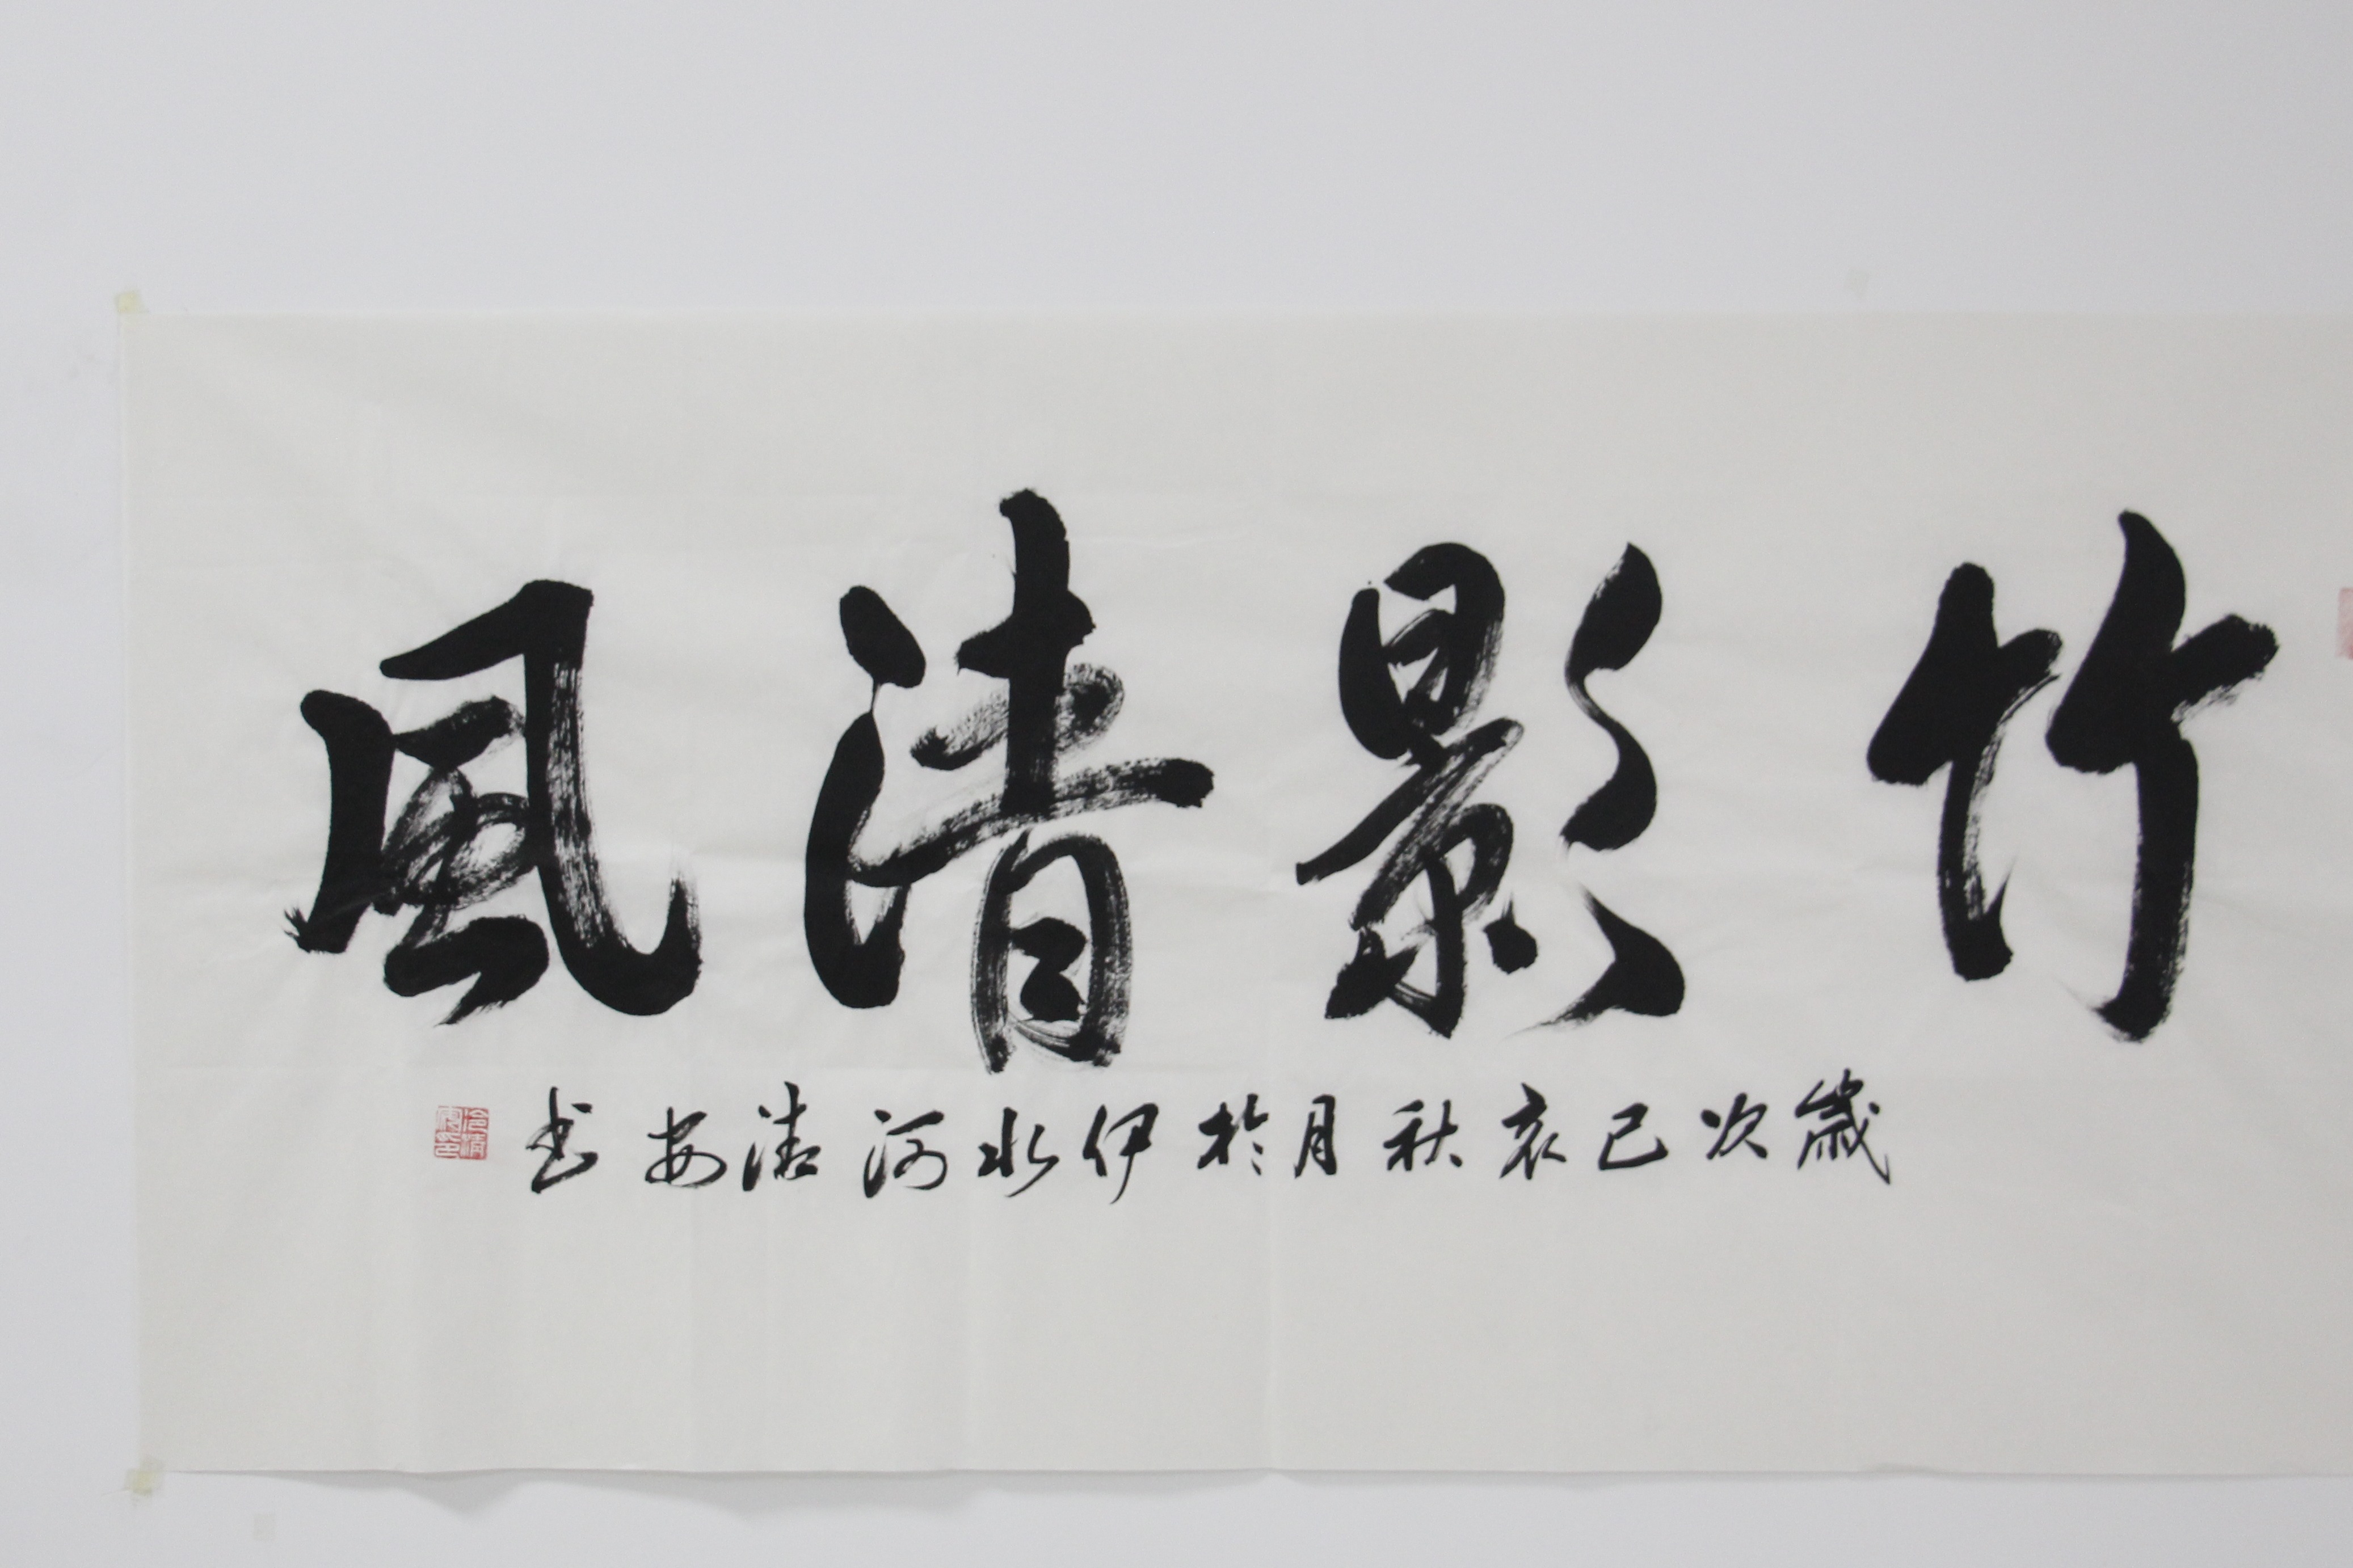 竹影清風
歲次己亥秋月於伊水河清安书